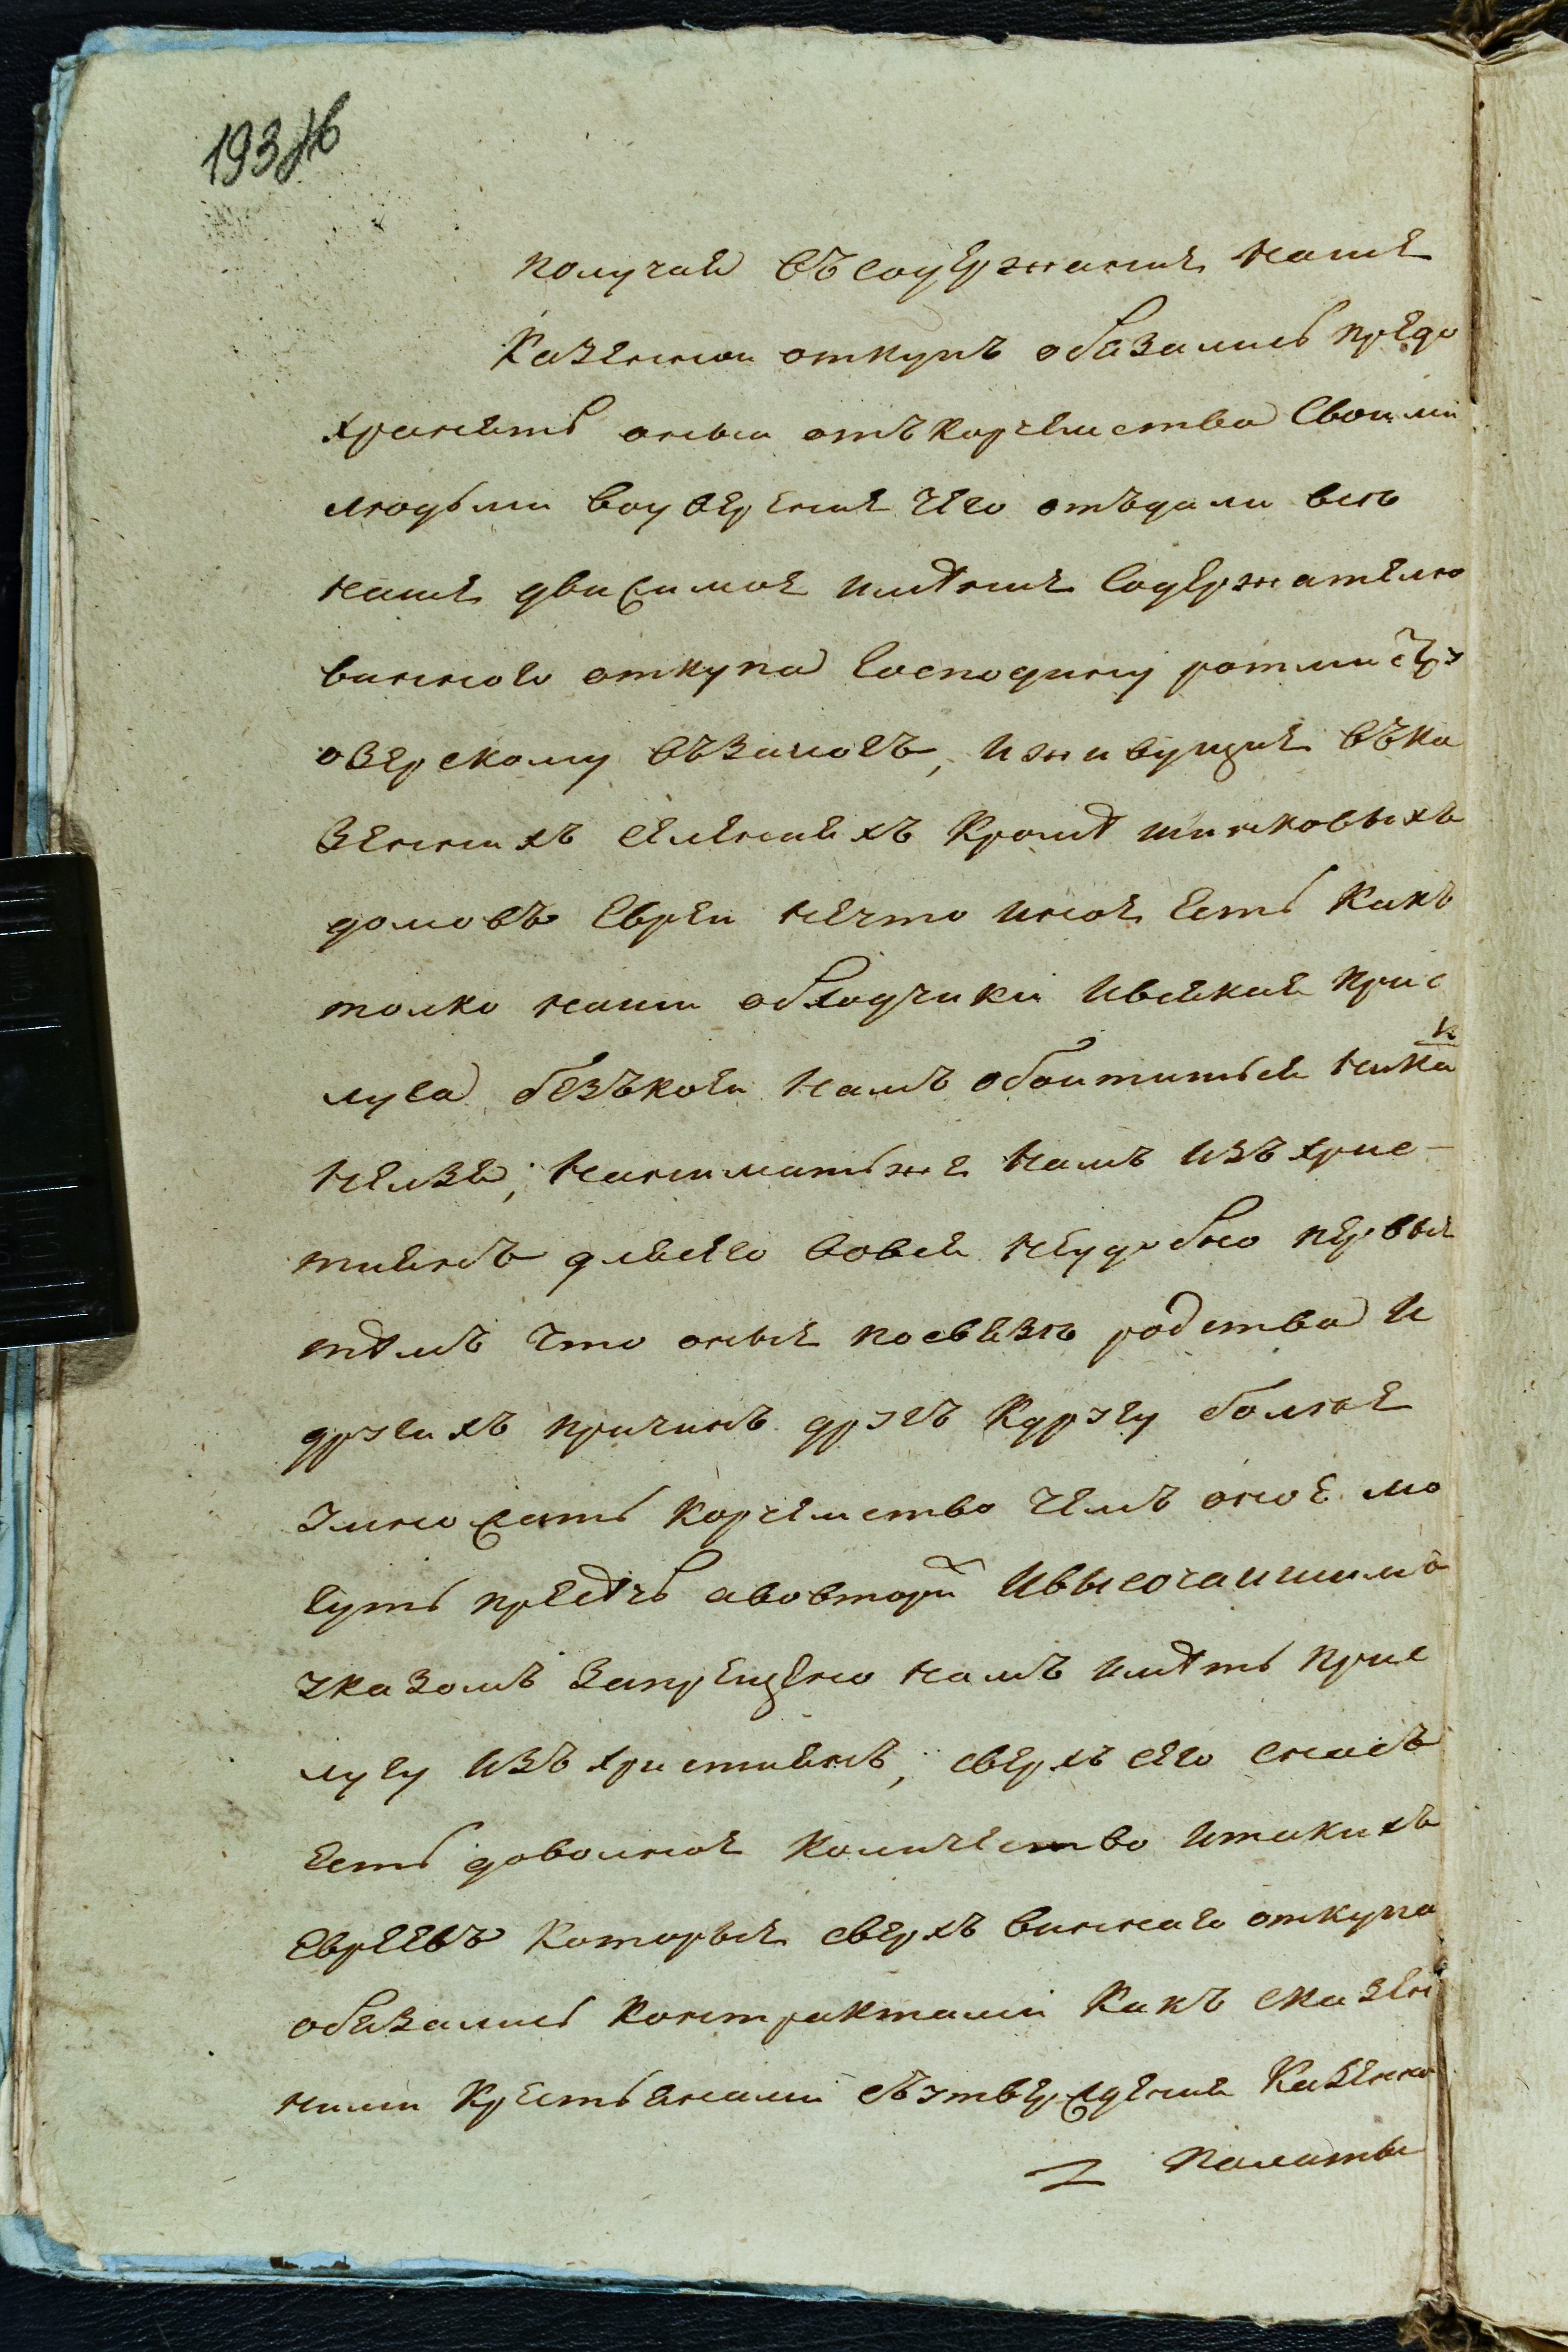 193 об
получая въ содержание наше
Казенной откупъ обязались предо
хранять оный отъ корчемства своими
людьми воуверение чего отъдали все
наше движимое имѣние содержателю
виннаго откупа господину ротмистру
озерскому въ залогъ, и живущие въ ка
зенныхъ селенияхъ кромѣ шинковыхъ
домовъ евреи не что иное есть какъ
толко наши обходчики и всякая прис
луга безъ коей намъ обойтиться никакъ
нелзя, нанимать же намъ изъ хрис-
тиянъ для сего вовся неудобно первые
тѣмъ что оные по связе родства и
другихъ причинъ другъ к другу более
умножать корчемство чемъ оное мо
гутъ пресѣчь а вовторых и высочайшимъ
указомъ запрещено намъ имѣть прис
лугу изъ християнъ, сверхъ сего снасъ
есть доволное количество и такихъ
евреевъ которые сверхъ виннаго откупа
обязались контрактами какъ с казен
ными крестьянами съ утверждения казенной
Палаты